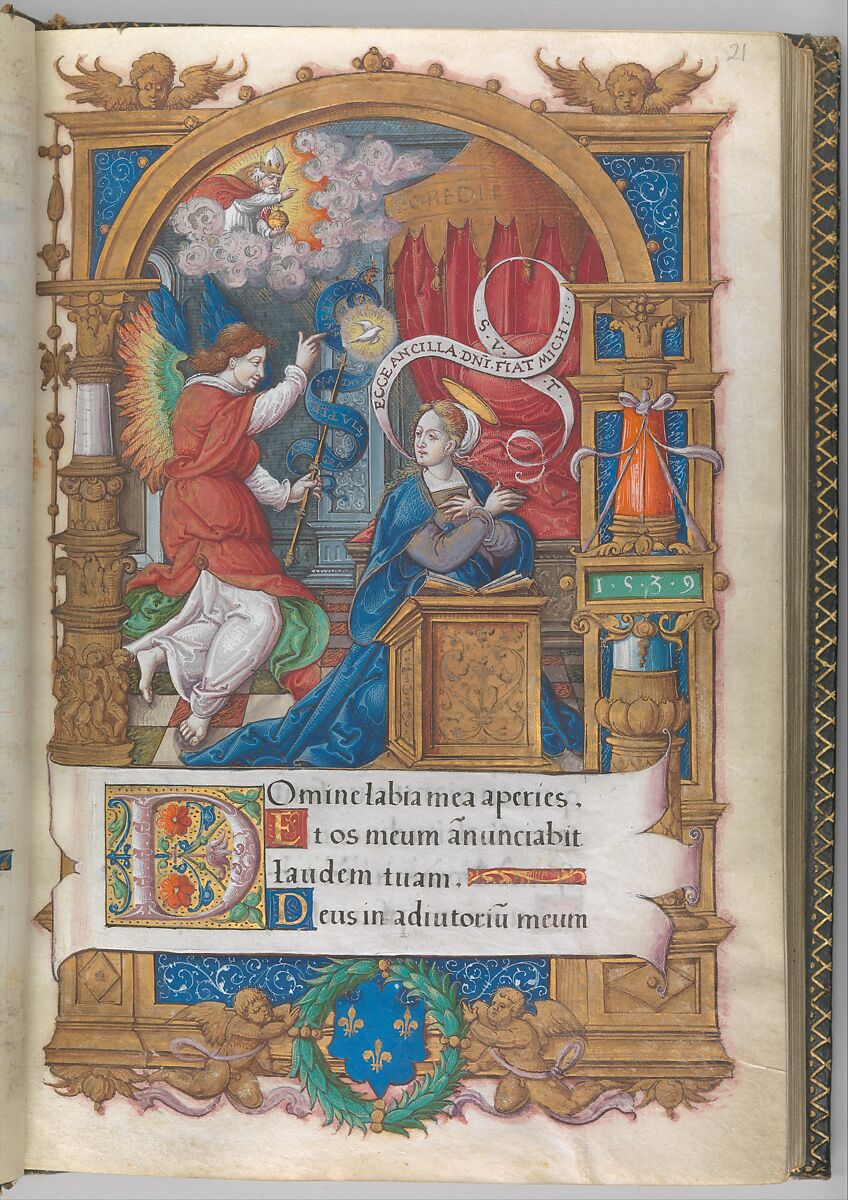 21
ECCE ANCILLA·DNĪ·FIAT MICHI·
S·V·
T·
1·5·3·9
Domine labia mea aperies.
Et os meum ān̄unciabit
laudem tuam.
Deus in adiutoriū meum